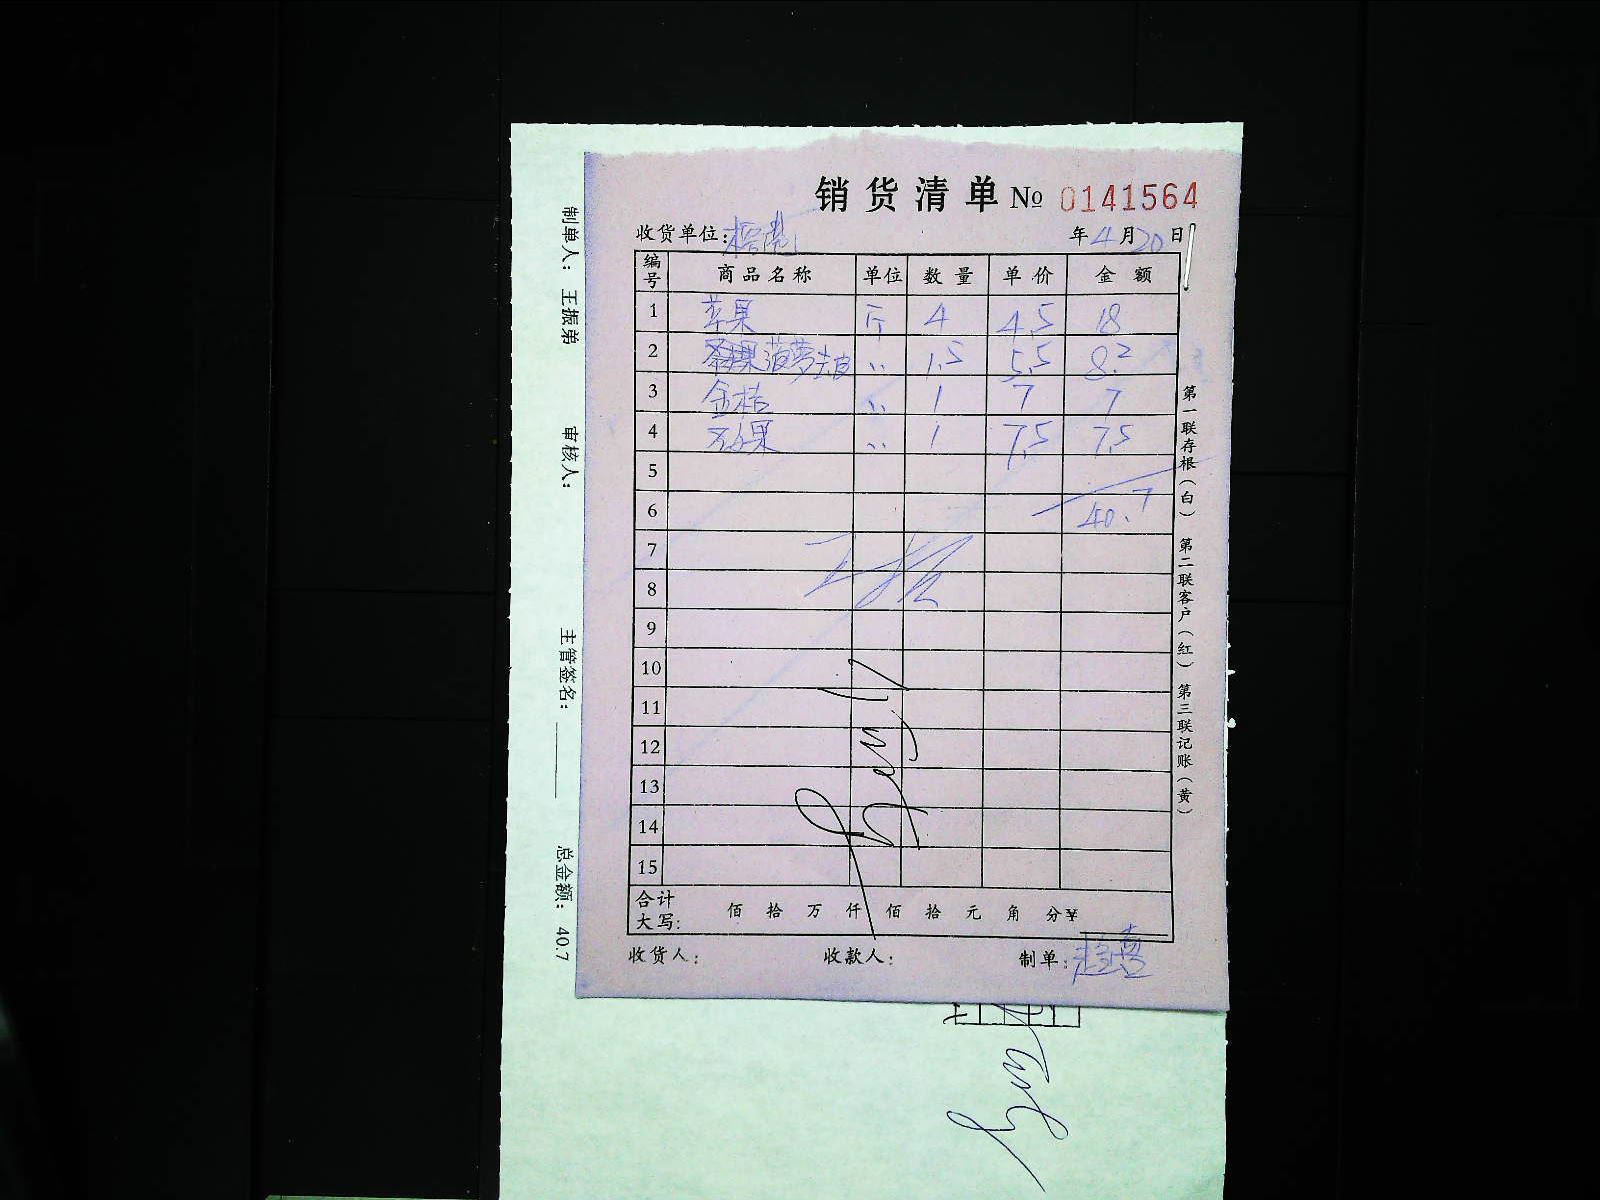 销货清单 № 0141564
收货单位: 年 4 月 20 日
编号 商品名称 单位 数量 单价 金额
1 苹果 斤 4 4.5 18
2 菠萝去皮 〃 1.5 5.5 8.2
3 金桔 〃 1 7 7
4 〃 1 7.5 7.5
5
6 40.7
7
8
9
10
11
12
13
14
15
合计大写: 佰 拾 万 仟 佰 拾 元 角 分 ¥
收货人: 收款人: 制单:
第一联存根(白) 第二联客户(红) 第三联记账(黄)
制单人: 王振弟 审核人: 主管签名: 总金额: 40.7